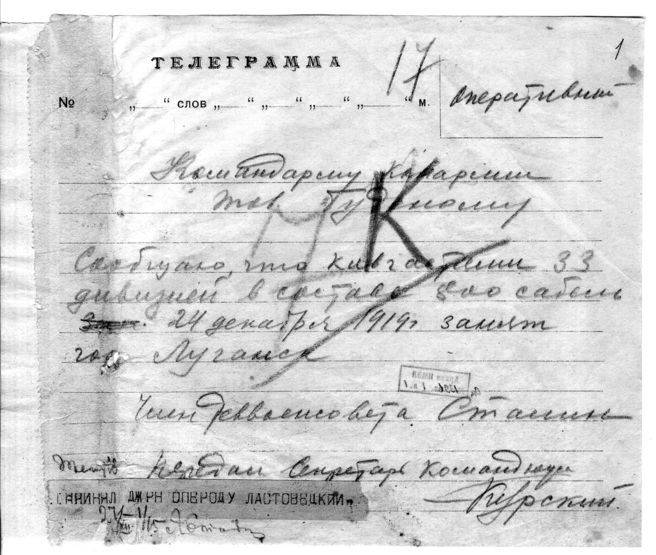 1
ТЕЛЕГРАММА
17
№ „ “ слов „ “ „ “ „ “ „ “ м.
Оперативный
Командарму Конармии
тов Буденному
Сообщаю, что кавчастями 33
дивизией в составе 800 сабель
24 декабря 1919г занят
гор Луганск
К
Член Реввоенсовета Сталин
Передал Секретарь
Курский.
ПРИНЯЛ ДЖРН ОПЕРОДУ ЛАСТОВЕЦКИЙ